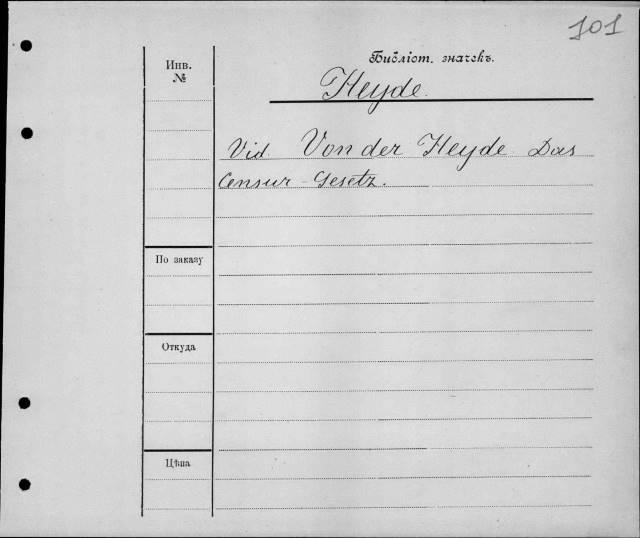 101
Инв.
№
Библіот. значекъ.
Heyde.
Vid. Von der Heyde Das
Censur-Gesetz.
По заказу
Откуда
Цѣна